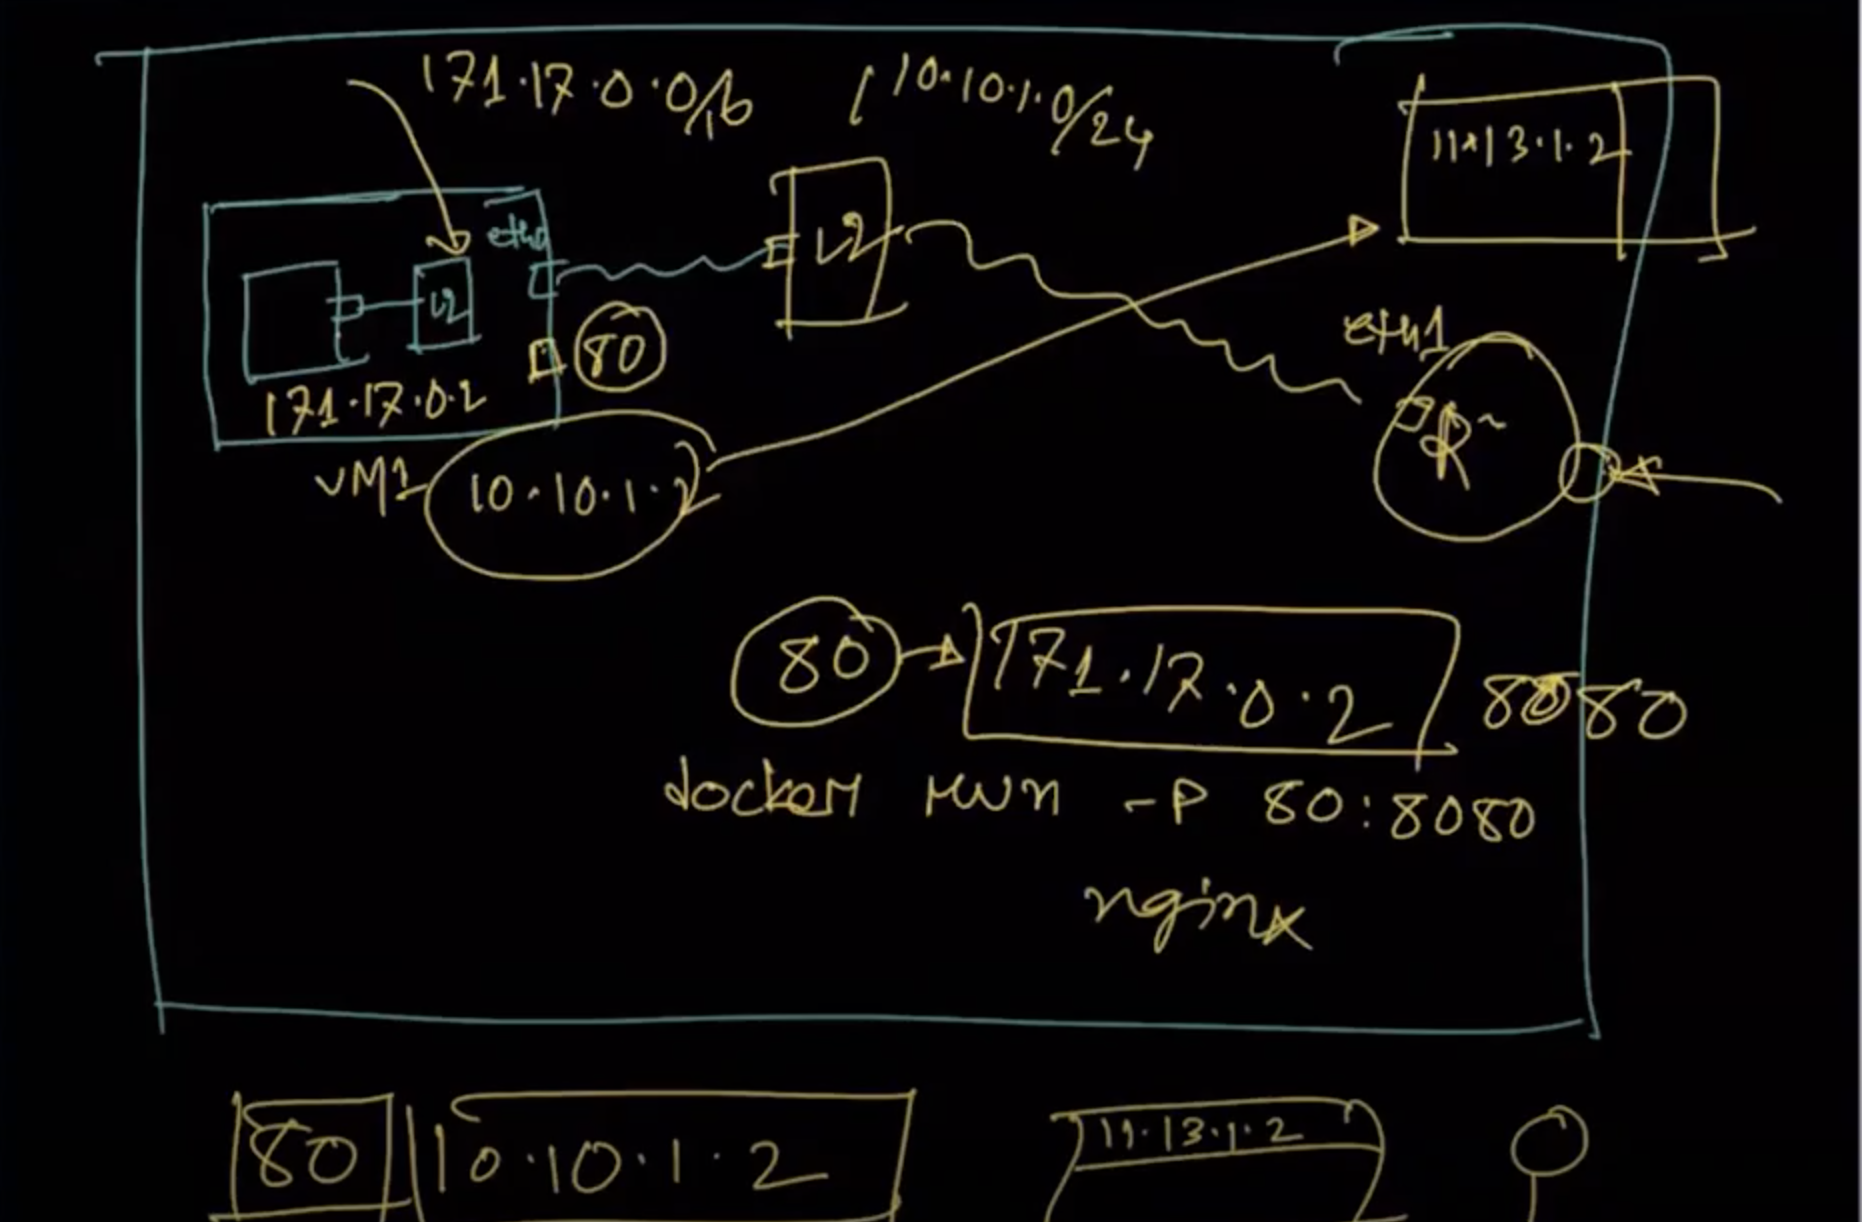 171.17.0.0/16
10.10.1.0/24
11.13.1.2
eth0
L2
L2
80
171.17.0.2
eth1
R
VM1
10.10.1.2
80 → 171.17.0.2 8080
docker run -P 80:8080
nginx
80 10.10.1.2
11.13.1.2